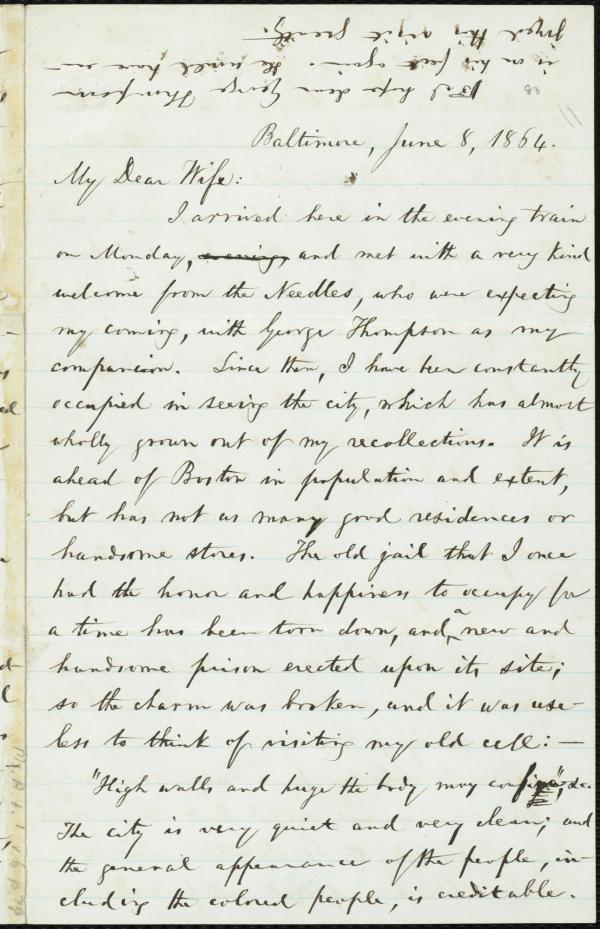 But hope dear George Thompson
is on his feet again. He would have en-
joyed this visit greatly.
Baltimore, June 8, 1864.
My Dear Wife:
I arrived here in the evening train
on Monday, evening, and met with a very kind
welcome from the Needles, who were expecting
my coming, with George Thompson as my
companion. Since then, I have been constantly
occupied in seeing the city, which has almost
wholly grown out of my recollections. It is
ahead of Boston in population and extent,
but has not as many good residences or
handsome stores. The old jail that I once
had the honor and happiness to occupy for
a time has been torn down, and a new and
handsome prison erected upon its site;
so the charm was broken, and it was use-
less to think of visiting my old cell: —
"High walls and huge the body may confine", &c.
The city is very quiet and very clean; and
the general appearance of the people, in-
cluding the colored people, is creditable.